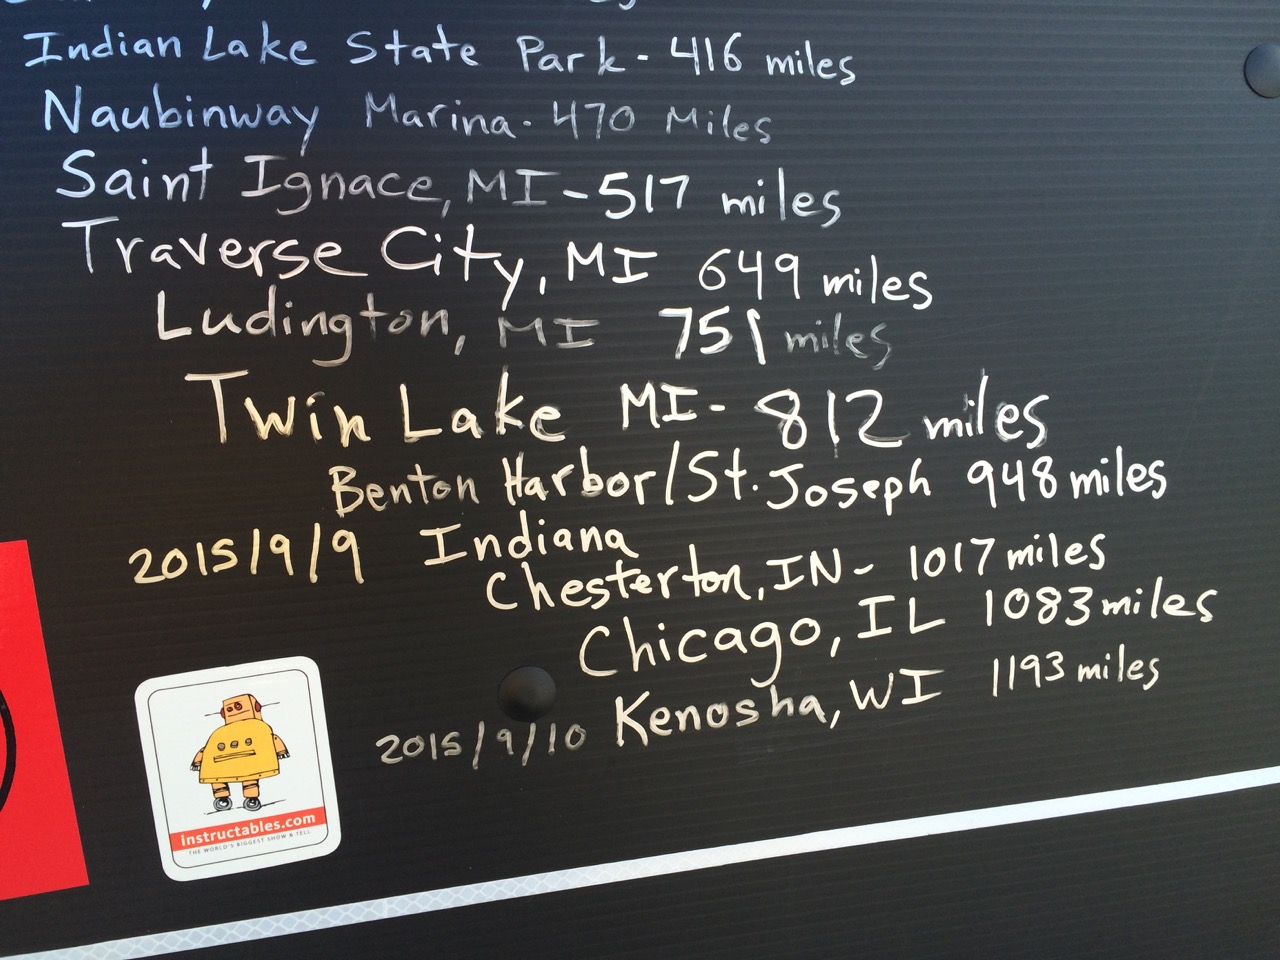 Indian Lake State Park - 416 miles
Naubinway Marina - 470 Miles
Saint Ignace, MI - 517 miles
Traverse City, MI 649 miles
Ludington, MI 751 miles
Twin Lake MI - 812 miles
Benton Harbor/St. Joseph 948 miles
2015/9/9 Indiana
Chesterton, IN - 1017 miles
Chicago, IL 1083 miles
2015/9/10 Kenosha, WI 1193 miles
instructables.com
THE WORLD'S BIGGEST SHOW & TELL